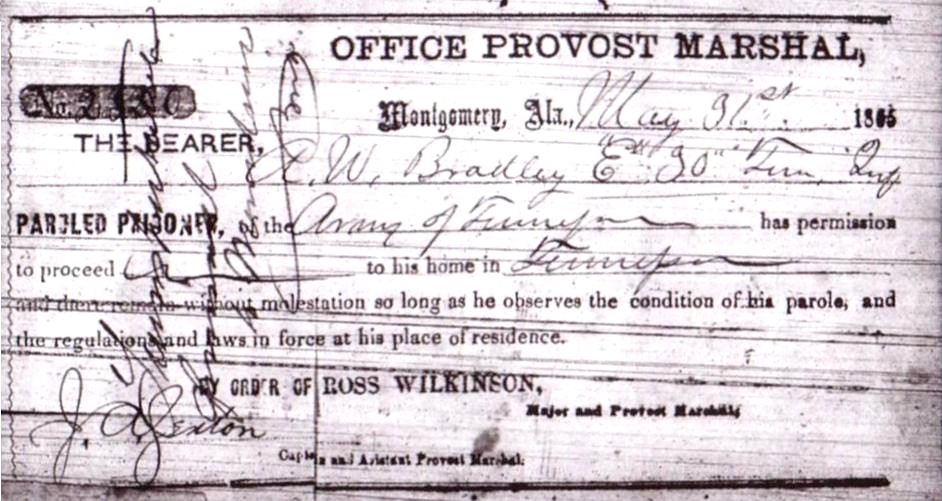 OFFICE PROVOST MARSHAL,
Montgomery, Ala., May 31st. 1865
THE BEARER,
R. W. Bradley "E" 30" Tenn Inf
PAROLED PRISONER, of the Army of Tennessee has permission
to proceed to his home in Tennessee
and there remain without molestation so long as he observes the condition of his parole, and
the regulations and laws in force at his place of residence.
BY ORDER OF ROSS WILKINSON,
Major and Provost Marshal;
J. A. Sexton
Captain and Asistant Provost Marshal.